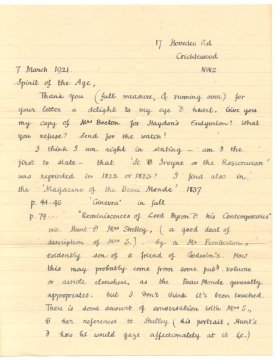 17 Hoveden Rd
Cricklewood
NW2
7 March 1921
Spirit of the Age,
Thank you (full measure, & running over) for
your letter a delight to my eye & heart. Give you
my copy of Mrs Beeton for Haydon's Endymion? What
you refuse? Send for the watch!
I think I am right in stating - am I the
first to state - that 'St Irvyne or the Rosicrucian'
was reprinted in 1822 or 1826? I find also in
the 'Magazine of the Beau Monde' 1837
p. 44-46 'Ginevra' in full
p. 79... "Reminiscences of Lord Byron & his Contemporaries"
viz. Hunt & Mrs Shelley, (a good deal of
description of Mrs S.) by a Mr Pemberton,
evidently son of a friend of Godwin's. Now
this may probably come from some pubd volume
or article elsewhere, as the Beau Monde generally
appropriates. but I don't think it's been touched.
There is some account of conversation with Mrs S.,
& her references to Shelley (his portrait, Hunt's
& how he would gaze affectionately at it &c.)